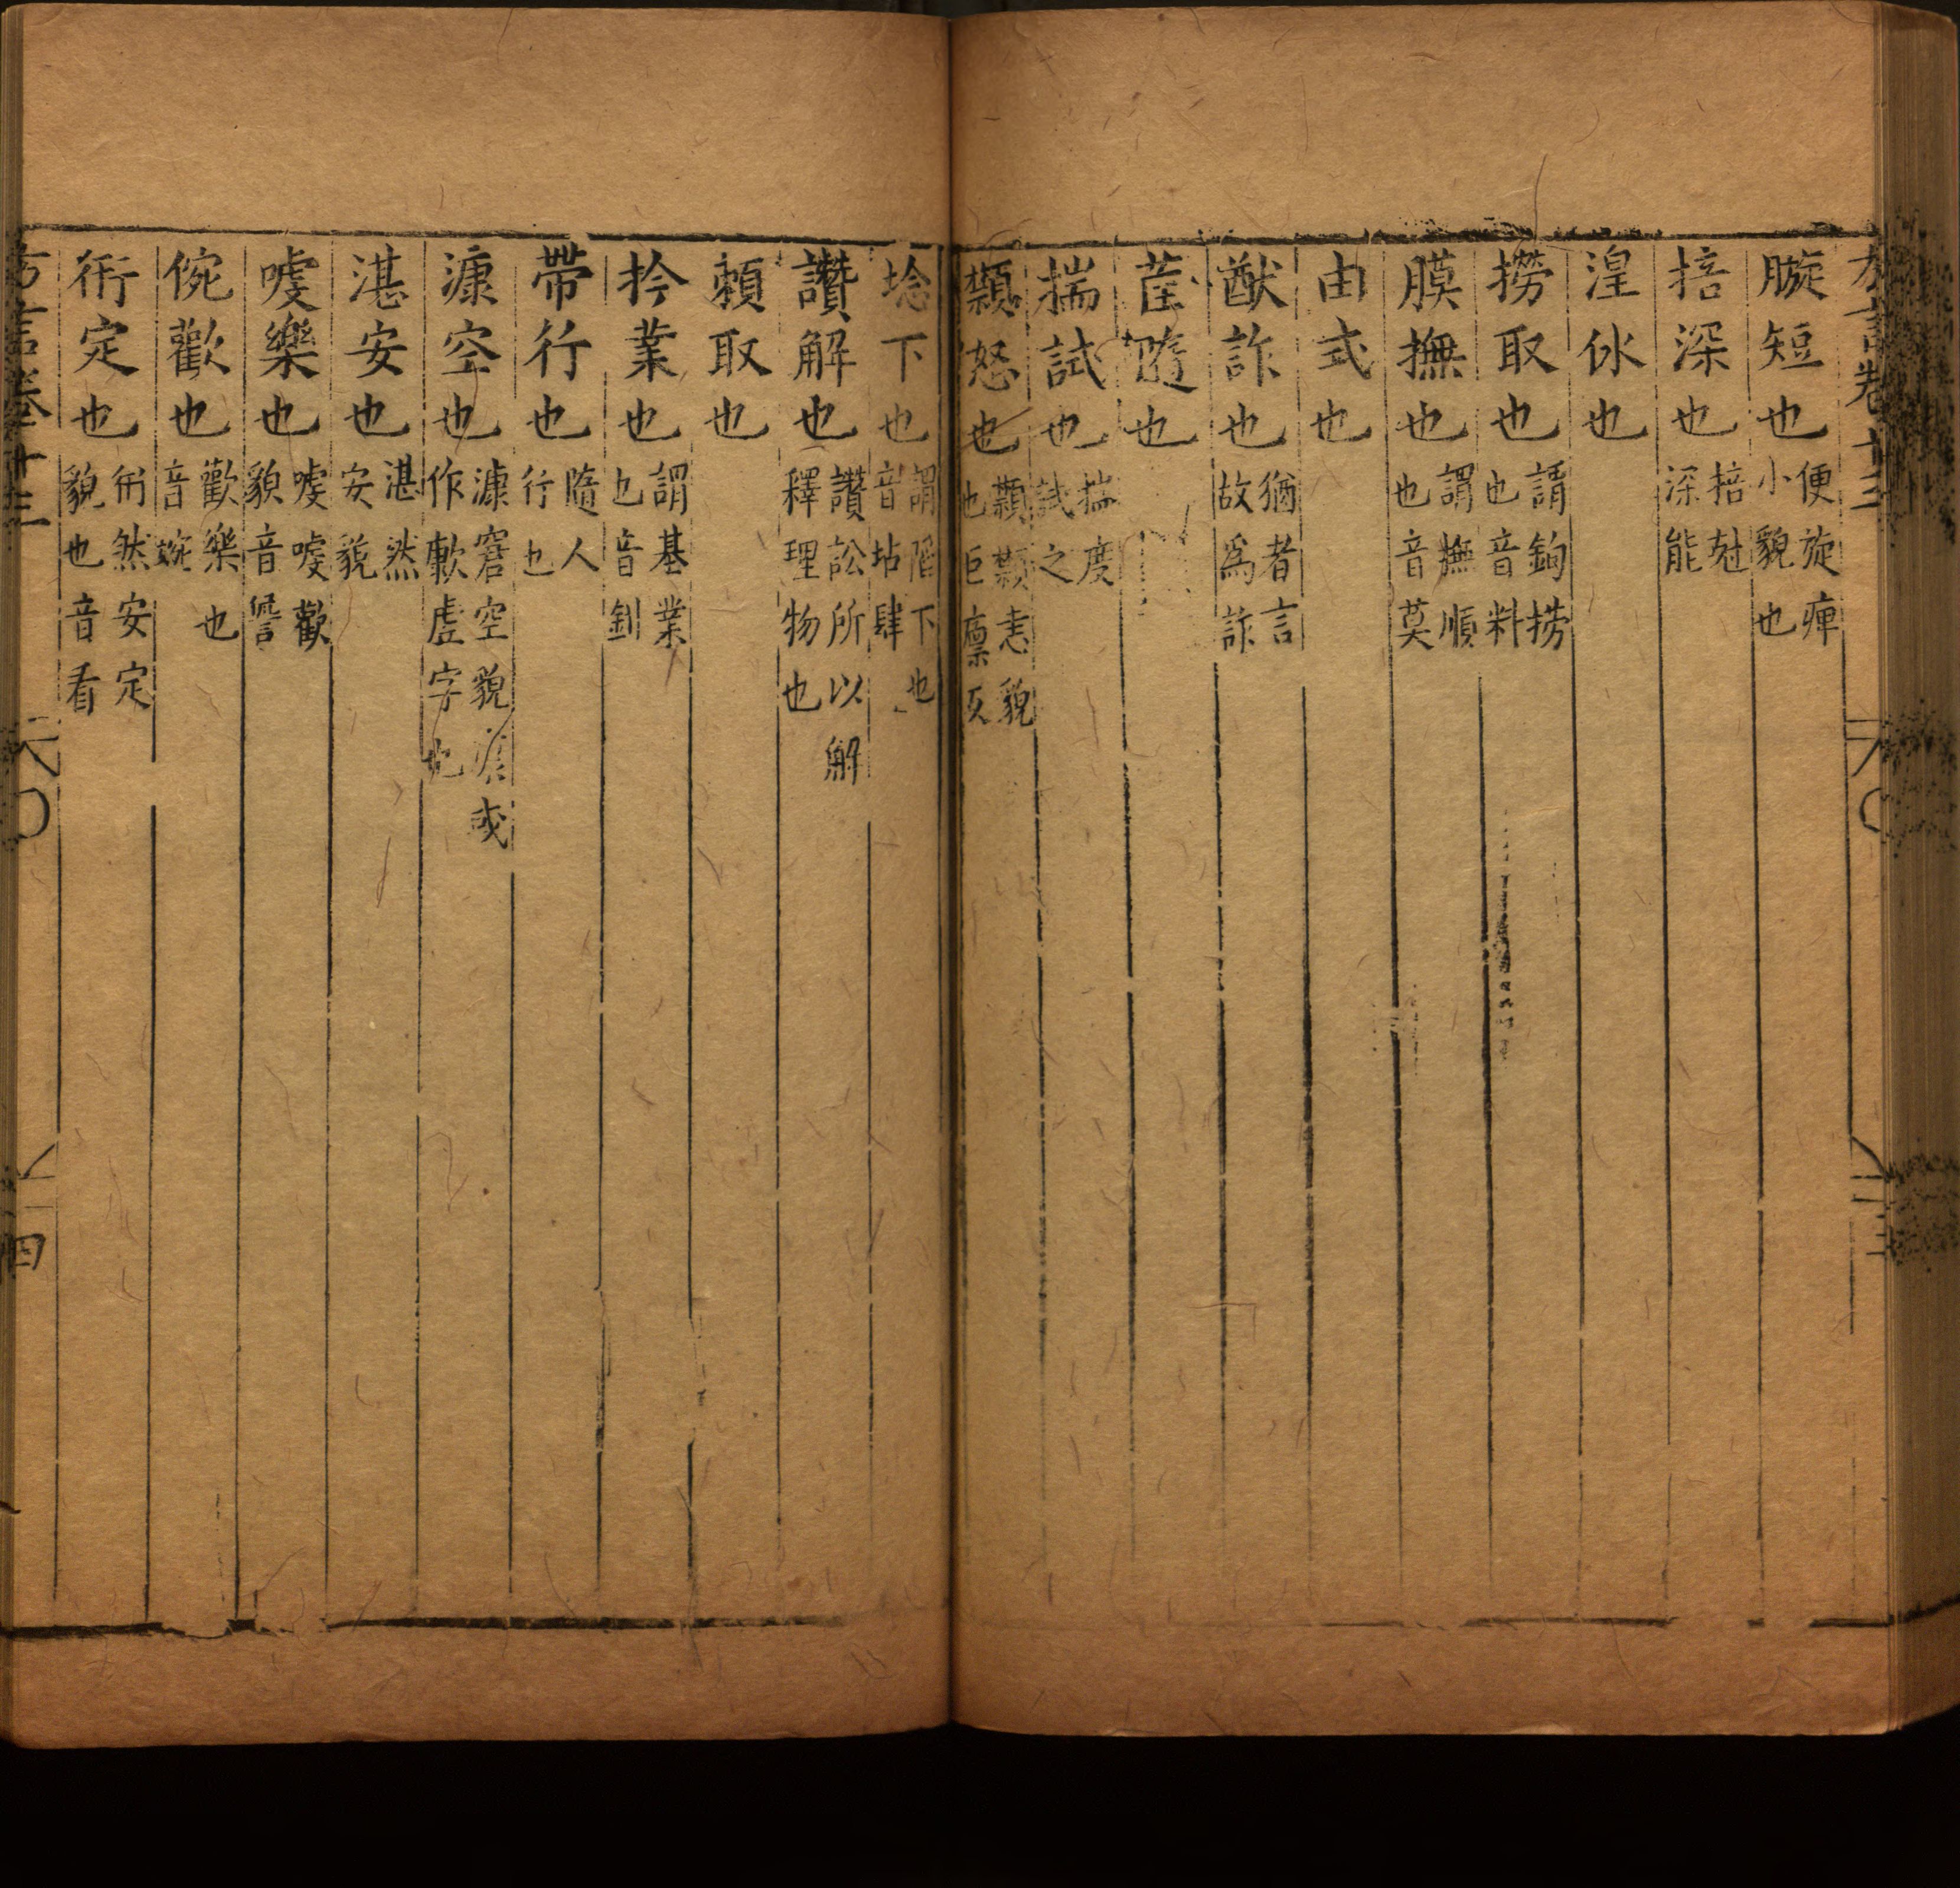 方言卷十三
䐢短也 便旋庳小貌也
掊深也 掊尅深能
湟休也
撈取也 謂鉤撈也音料
膜撫也 謂撫順也音莫
由式也
猷詐也 猶者言故爲詐
隨也
揣試也 揣度試之
纇怒也 纇纇恚貌也巨廩反
埝下也 謂陷下也音坫肆
讚解也 讚訟所以解釋理物也
賴取也
扲業也 謂基業也音釗
帶行也 隨人行也
漮空也 漮窘空貌漮或作歉虛字也
湛安也 湛然安貌
㖸樂也 㖸㖸歡貌音諐
㑌歡也 歡樂也音婉
衎定也 衎然安定貌也音看
方言卷十三
四